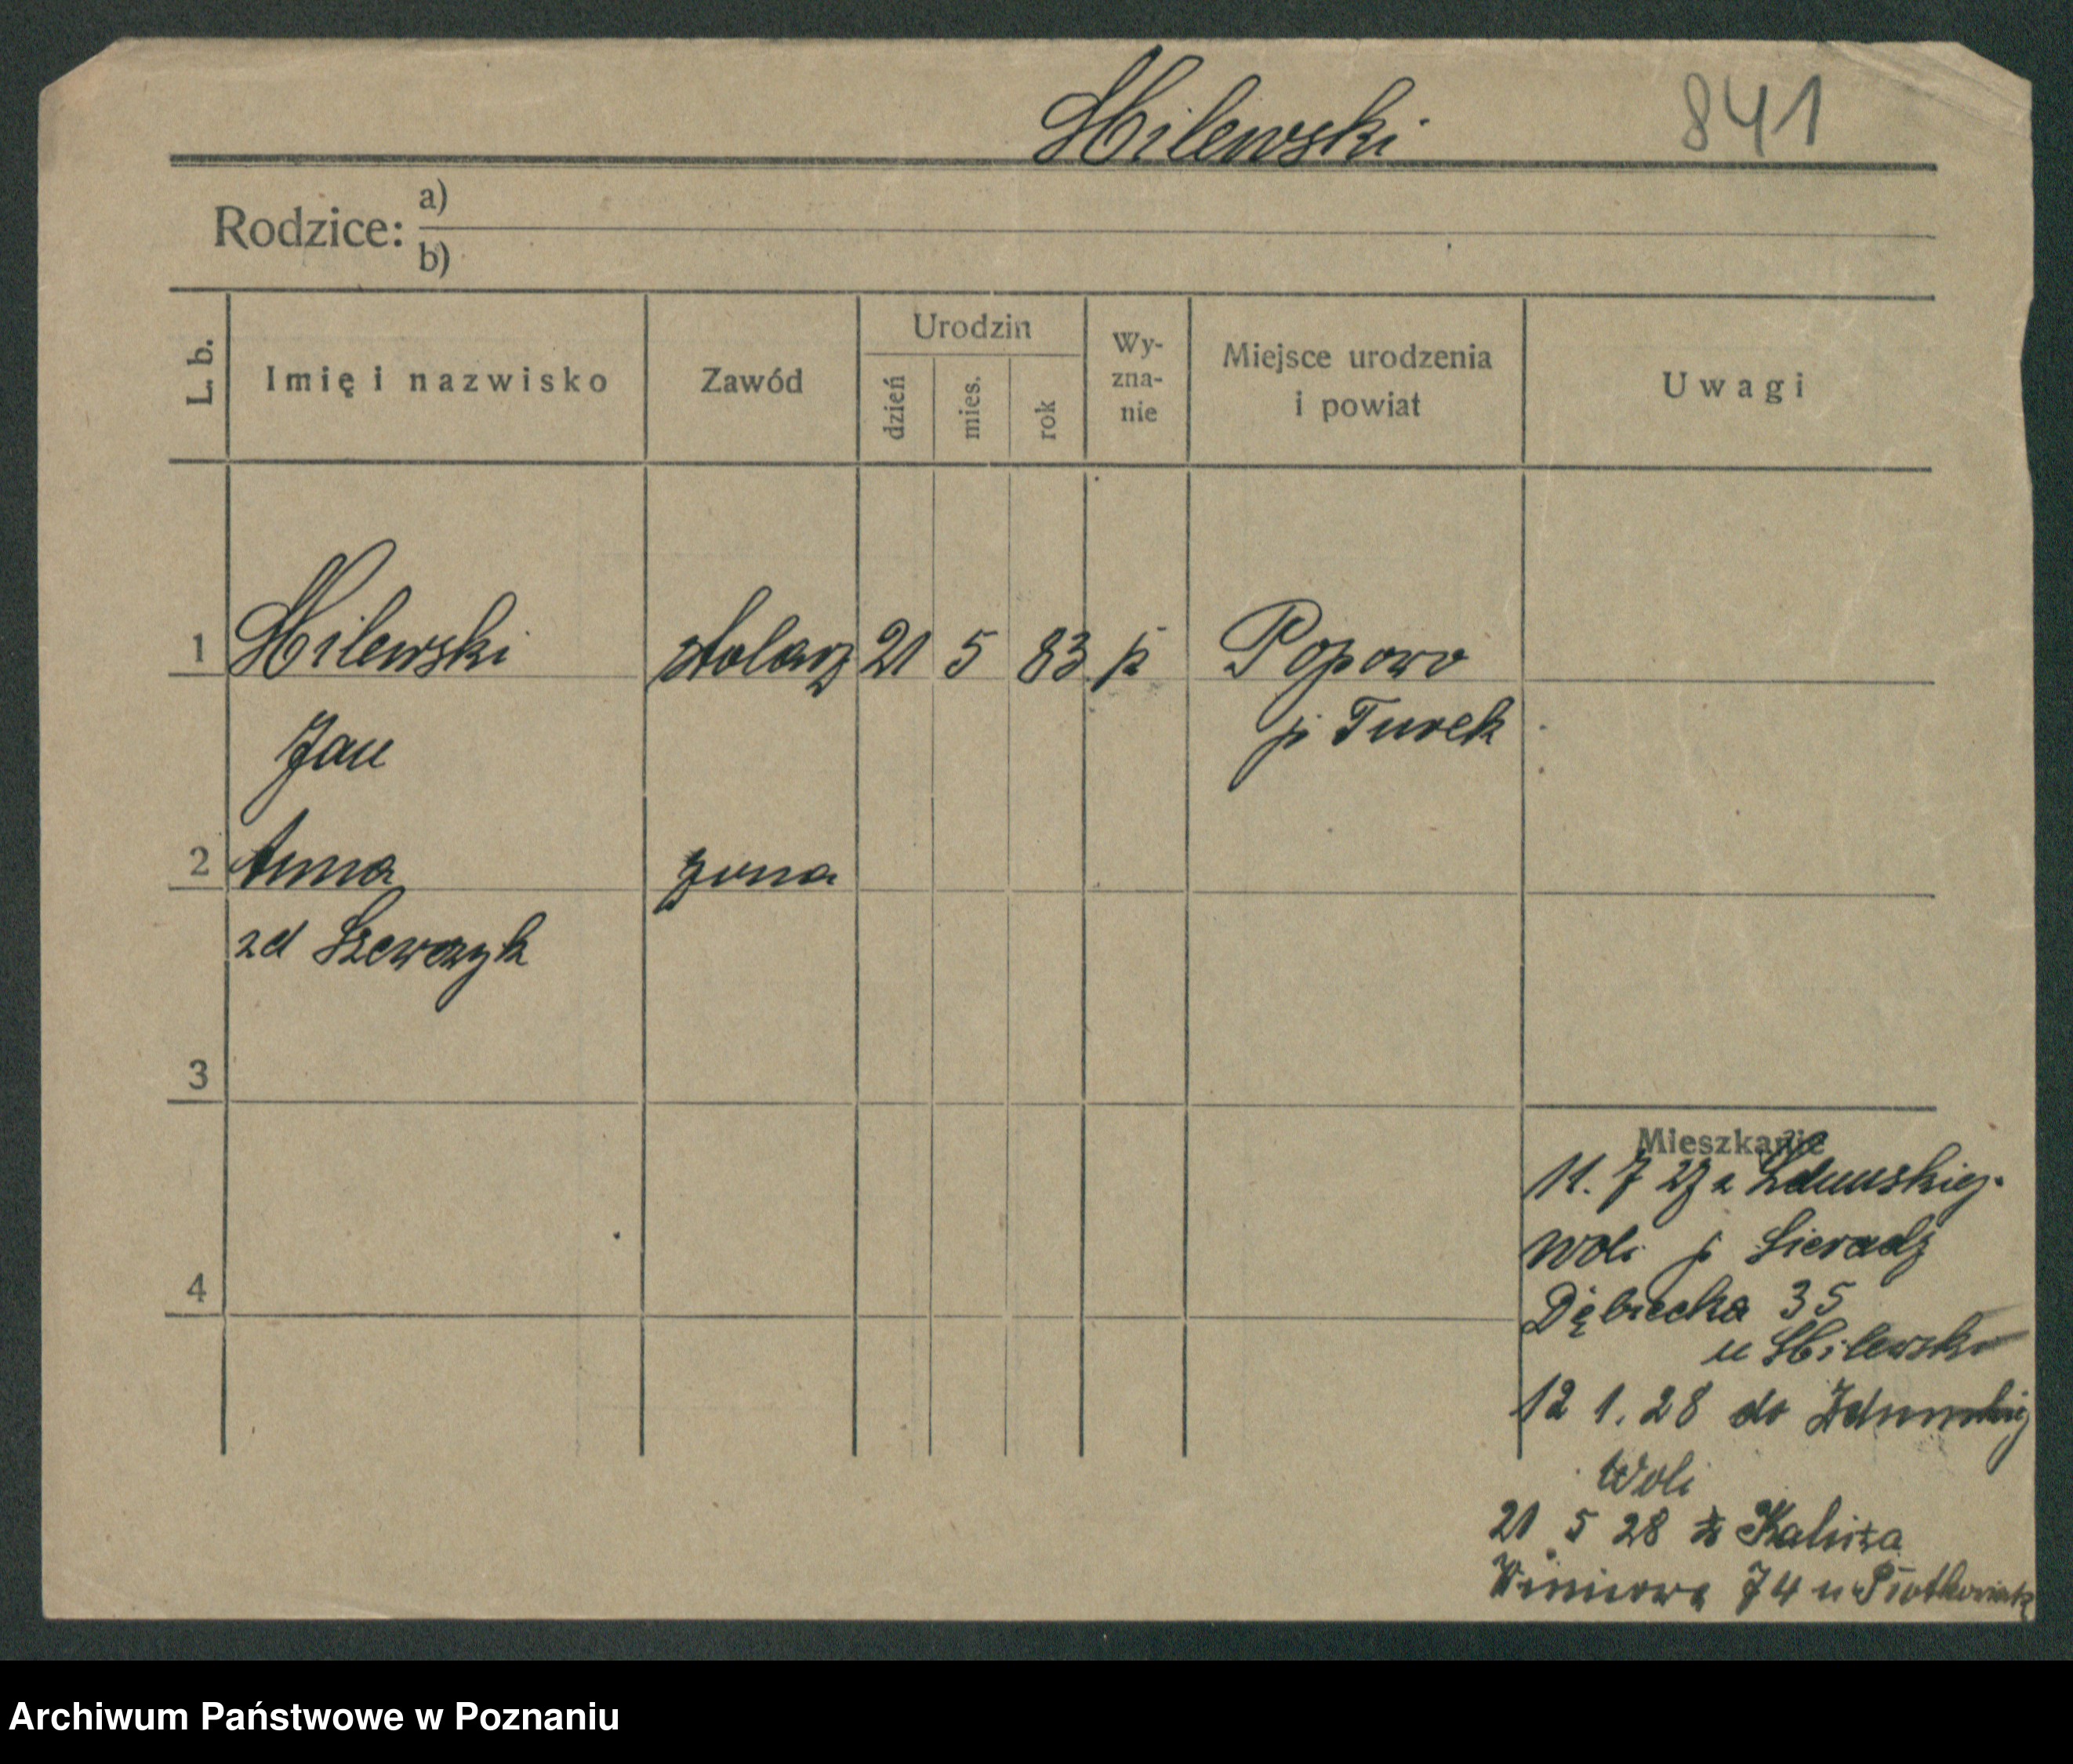 Milewski 841
Rodzice: a)
b)
L. b. Imię i nazwisko Zawód Urodzin dzień mies. rok Wy-zna-nie Miejsce urodzenia i powiat Uwagi
1 Milewski stolarz 21 5 83 k Popowo
Jan p Turek
2 Anna żona
zd Szewczyk
3
Mieszkanie
11. 7 27 z Zduńskiej
Woli p Sieradz
4
Dębiecka 35
u Milewski
12 1. 28 do Zduńskiej
Woli
21 5 28 z Kalisza
74 u Piotkowiak
Archiwum Państwowe w Poznaniu